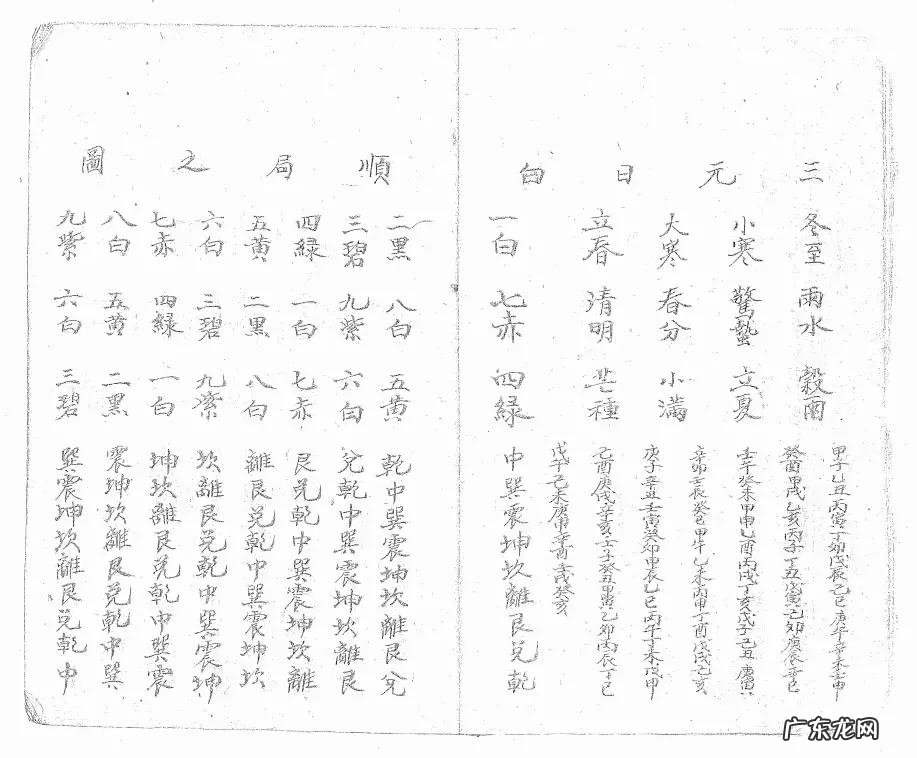 三元日白
冬至 雨水 穀雨
小寒 驚蟄 立夏
大寒 春分 小滿
立春 清明 芒種
甲子乙丑丙寅丁卯戊辰己巳庚午辛未壬申
癸酉甲戌乙亥丙子丁丑戊寅己卯庚辰辛巳
壬午癸未甲申乙酉丙戌丁亥戊子己丑庚寅
辛卯壬辰癸巳甲午乙未丙申丁酉戊戌己亥
庚子辛丑壬寅癸卯甲辰乙巳丙午丁未戊申
己酉庚戌辛亥壬子癸丑甲寅乙卯丙辰丁巳
戊午己未庚申辛酉壬戌癸亥
一白 七赤 四綠 中巽震坤坎離艮兌乾
順局之圖
二黑 八白 五黃 乾中巽震坤坎離艮兌
三碧 九紫 六白 兌乾中巽震坤坎離艮
四綠 一白 七赤 艮兌乾中巽震坤坎離
五黃 二黑 八白 離艮兌乾中巽震坤坎
六白 三碧 九紫 坎離艮兌乾中巽震坤
七赤 四綠 一白 坤坎離艮兌乾中巽震
八白 五黃 二黑 震坤坎離艮兌乾中巽
九紫 六白 三碧 巽震坤坎離艮兌乾中
广东龙网